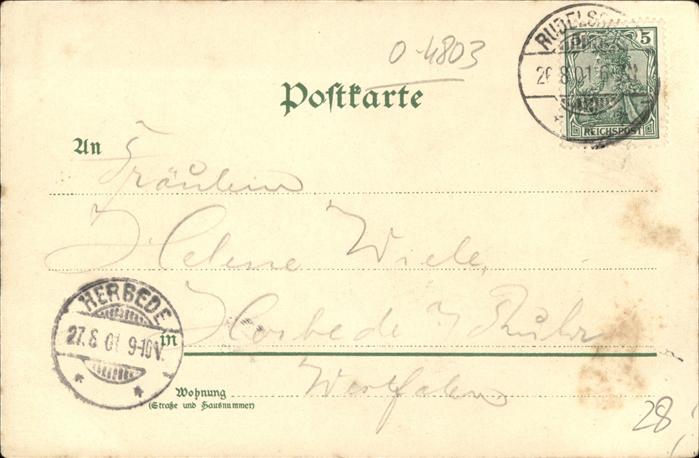 0-4803
RUDELS
5
26.8.01
REICHSPOST
Postkarte
An
Fräulein
Helene Wiele,
HERBEDE
27.8.01 9-10V.
in
Herbede / Ruhr
Wohnung
Westfalen
(Straße und Hausnummer)
28,